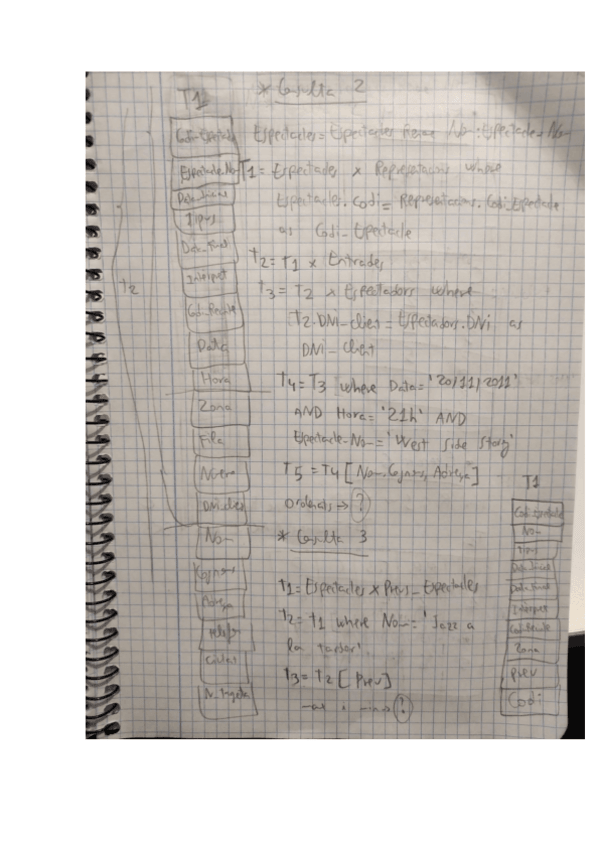 T1
* Consulta 2
Codi-Espectacle
Espectacles = Espectacles Nom : Espectacle-Nom
Espectacle-Nom
T1 = Espectacles x Representacions where
Data_Inicial
Espectacles.Codi = Representacions.Codi_Espectacle
Tipus
as Codi_Espectacle
Data_Final
T2 = T1 x Entrades
Interpret
T2
T3 = T2 x Espectadors where
Codi_Recinte
T2.DNI_client = Espectadors.DNI as
Data
DNI_client
Hora
T4 = T3 where Data = '20/11/2011'
Zona
AND Hora = '21h' AND
Fila
Espectacle-Nom = 'West Side Story'
Numero
T5 = T4 [Nom, Cognoms, Adreça]
T1
DNI_client
Ordenats → ?
Codi-espectacle
Nom
* Consulta 3
Nom
Tipus
Cognoms
Data_Inicial
T1 = Espectacles x Preus_Espectacles
Data_Final
Adreça
Interpret
T2 = T1 where Nom = 'Jazz a
Codi_Recinte
Telefon
la tardor'
Zona
Ciutat
T3 = T2 [Preu]
Preu
N_Targeta
max i min → ?
Codi